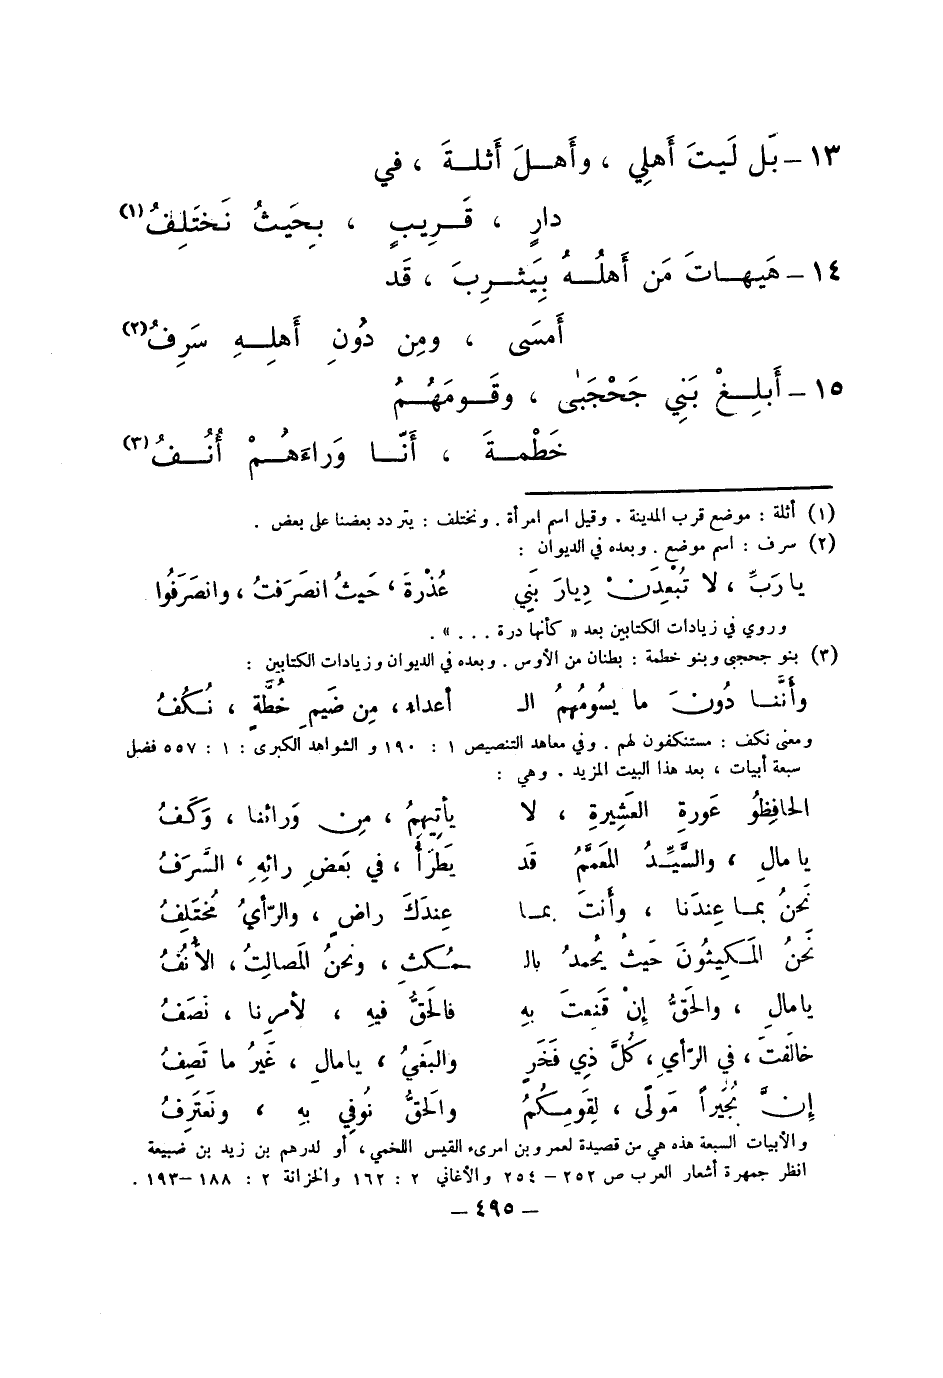 ١٣ – بَل لَيتَ أَهلِي ، وأَهـلَ أَثلـةَ ، في
دارٍ ، قَـرِيبٍ ، بحَيثُ نَختَلِفُ (١)
١٤ – هَيهـاتَ مَن أَهلُـهُ بِيَثـرِبَ ، قَد
أَمسَى ، ومِن دُونِ أَهلِـهِ سَرِفُ (٢)
١٥ – أَبلِـغْ بَنِي جَحْجَبَى ، وقَـومَهُـمُ
خَطْمـةَ ، أَنّـا وَراءَهُـمْ أُنُـفُ (٣)
(١) أثلة : موضع قرب المدينة . وقيل اسم امرأة . ونختلف : يتردد بعضنا على بعض .
(٢) سرف : اسم موضع . وبعده في الديوان :
يا رَبِّ ، لا تُبْعِدَنْ دِيارَ بَنِي عُذْرةَ ، حَيثُ انصَرَفتُ ، وانصَرَفُوا
وروي في زيادات الكتابين بعد « كأنها درة . . . » .
(٣) بنو جحجبى وبنو خطمة : بطنان من الأوس . وبعده في الديوان وزيادات الكتابين :
وأَنَّنـا دُونَ ما يَسُومُهُمُ الـ أعداءُ ، مِن ضَيمِ خُطَّةٍ ، نُـكُفُ
ومعنى نكف : مستنكفون لهم . وفي معاهد التنصيص ١ : ١٩٠ و الشواهد الكبرى : ١ : ٥٥٧ فضل
سبعة أبيات ، بعد هذا البيت المزيد . وهي :
الحافِظُو عَورةِ العَشِيرةِ ، لا يأتِيهِمُ ، مِن وَرائنا ، وَكَفُ
يا مالِ ، والسَّيِّدُ المُعَمَّمُ قَد يَطرَأُ ، في بَعضِ رائِهِ ، السَّرَفُ
نَحنُ بمـا عِندَنا ، وأَنتَ بمـا عِندَكَ راضٍ ، والرّأيُ مُختَلِفُ
نَحنُ المَـكِيثُونَ حَيثُ يُحمدُ بالـ ـمُـكثِ ، ونحنُ المَصالِتُ ، الأُنُفُ
يا مالِ ، والحَقُّ إِنْ قَنِعتَ بِهِ فالحَقُّ فيهِ ، لأمرِنا ، نَصَفُ
خالَفتَ ، في الرّأيِ ، كُلَّ ذِي فَخَرٍ والبَغيُ ، يا مالِ ، غَيرُ ما تَصِفُ
إنَّ بُجَيراً مَولًى ، لِقَومِـكُمُ والحَقُّ نُوفِي بِهِ ، ونَعتَرِفُ
والأبيات السبعة هذه هي من قصيدة لعمرو بن امرىء القيس اللخمي ، أو لدرهم بن زيد بن ضبيعة
انظر جمهرة أشعار العرب ص ٢٥٢ – ٢٥٤ والأغاني ٢ : ١٦٢ والخزانة ٢ : ١٨٨ – ١٩٣ .
– ٤٩٥ –